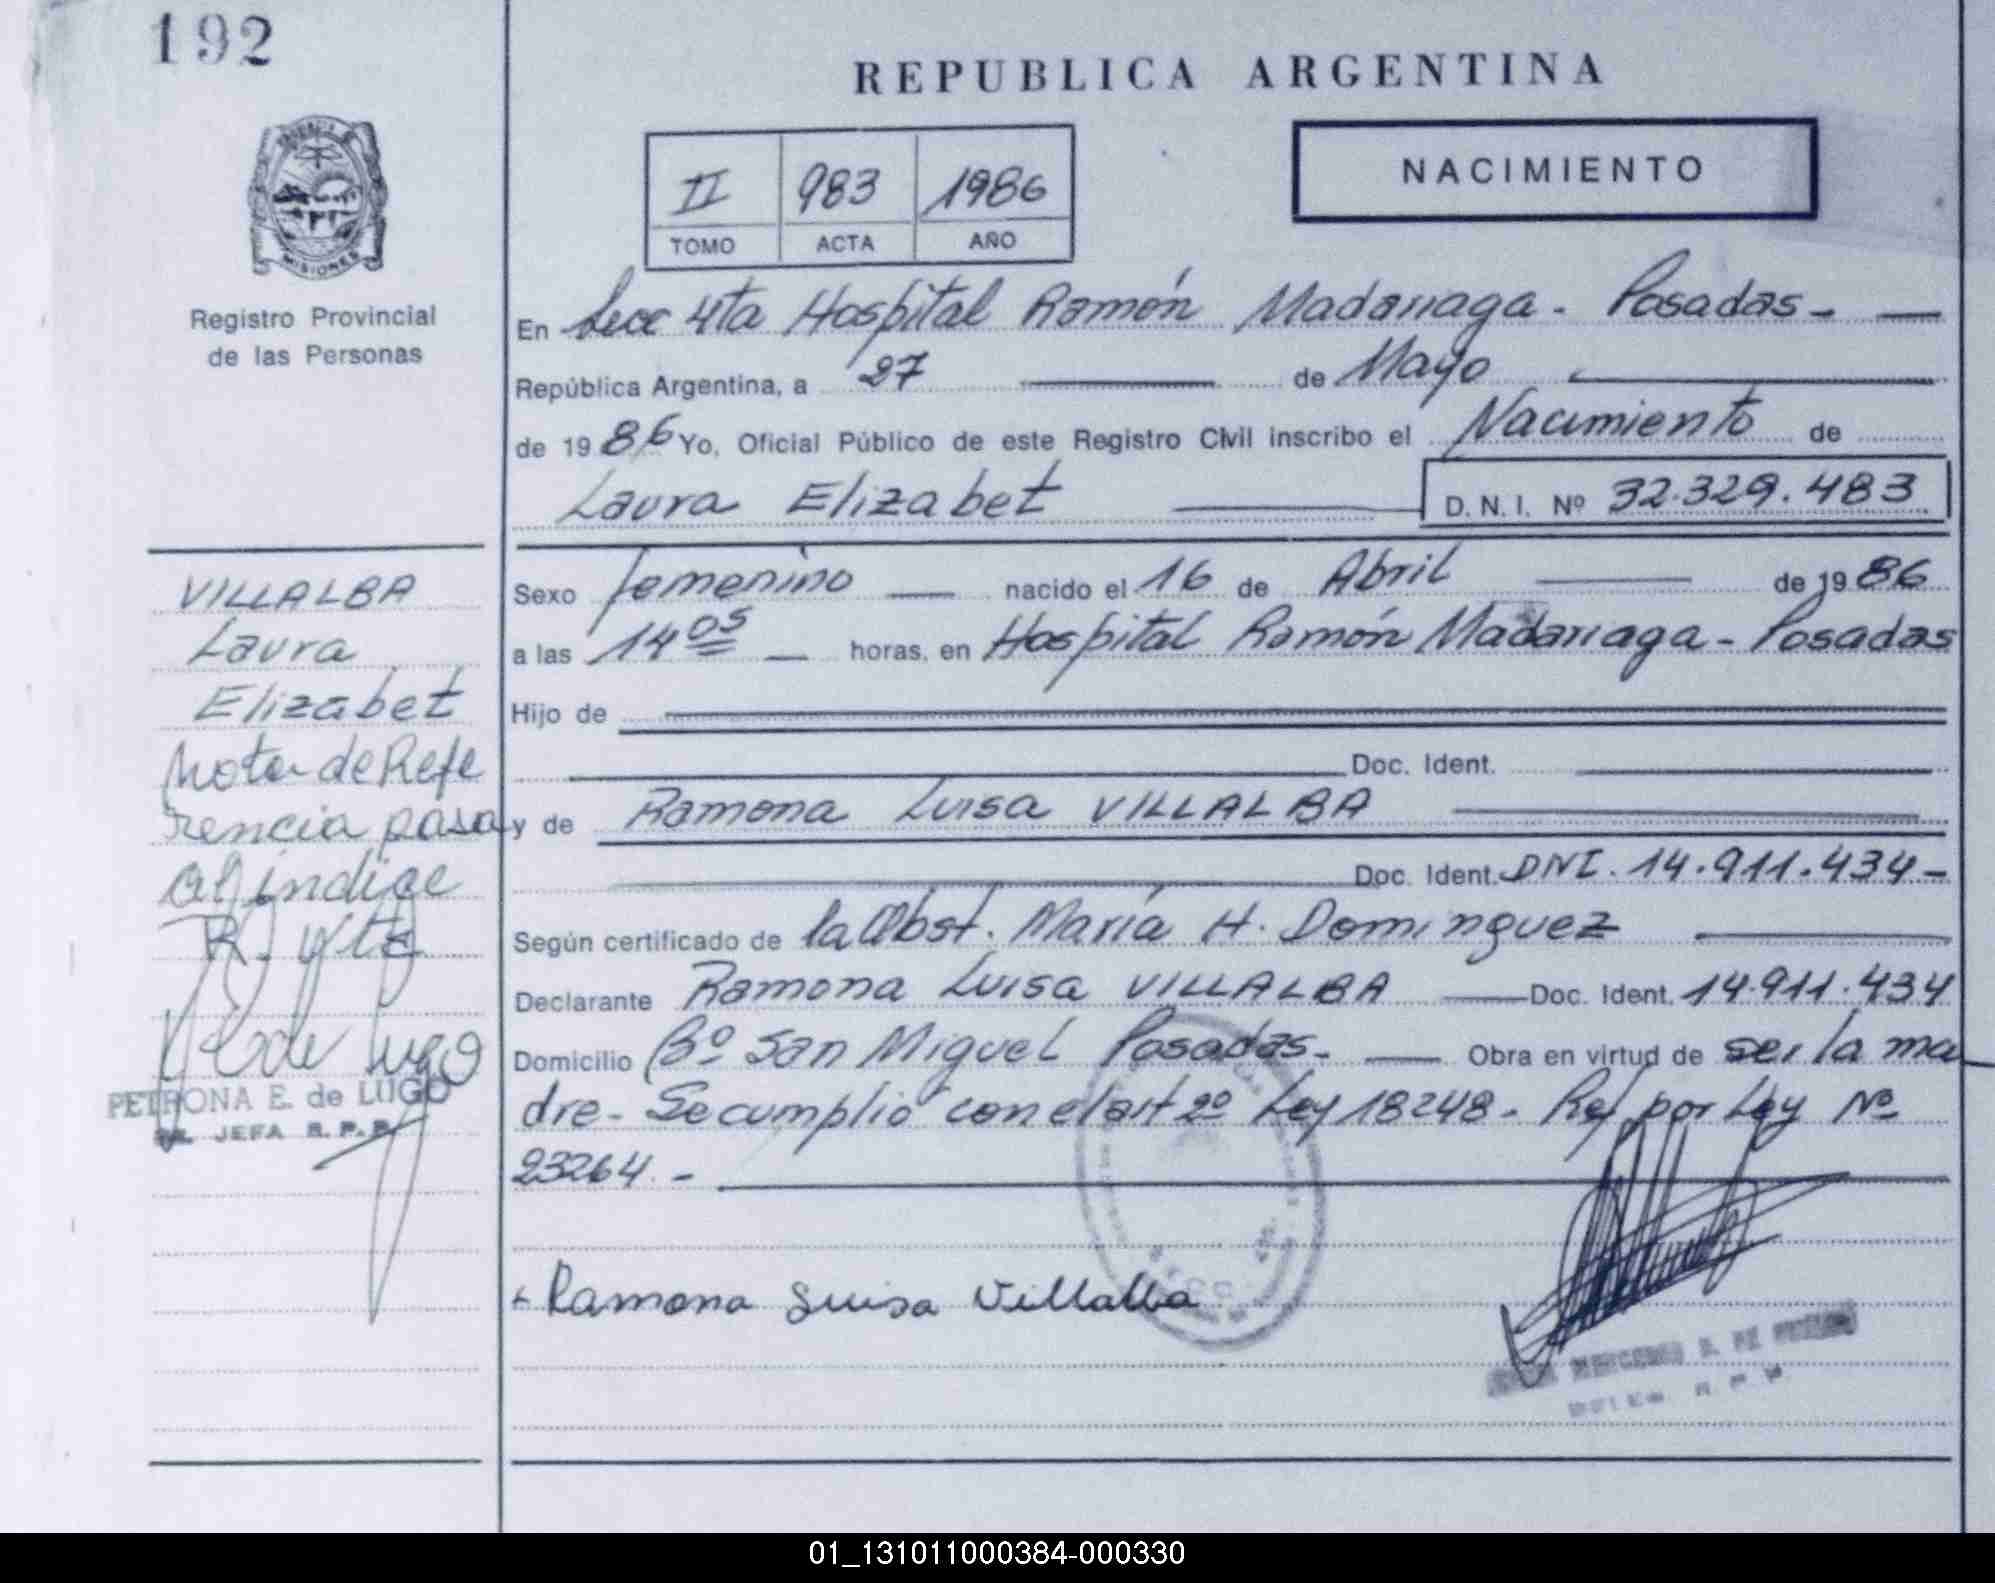 192
REPUBLICA ARGENTINA
II 983 1986
TOMO ACTA AÑO
NACIMIENTO
MISIONES
Registro Provincial
de las Personas
En Secc 4ta Hospital Ramón Madariaga - Posadas -
República Argentina, a 27 de Mayo
de 1986 Yo, Oficial Público de este Registro Civil inscribo el Nacimiento de
Laura Elizabet D.N.I. Nº 32.329.483
Sexo femenino nacido el 16 de Abril de 1986
a las 14 05 horas, en Hospital Ramón Madariaga - Posadas
Hijo de
Doc. Ident.
y de Ramona Luisa VILLALBA
Doc. Ident. DNI. 14.911.434 -
Según certificado de la Obst. María H. Dominguez
Declarante Ramona Luisa VILLALBA Doc. Ident. 14.911.434
Domicilio Bº San Miguel Posadas - Obra en virtud de ser la ma
dre - Se cumplió con el art 2º Ley 18248 - Ref por Ley Nº
23264. -
Ramona Luisa Villalba
VILLALBA
Laura
Elizabet
Nota de Refe
rencia pasa
al índice
R. 4ta
E de Lugo
PETRONA E. de LUGO
JEFA R.P.P.
01_131011000384-000330